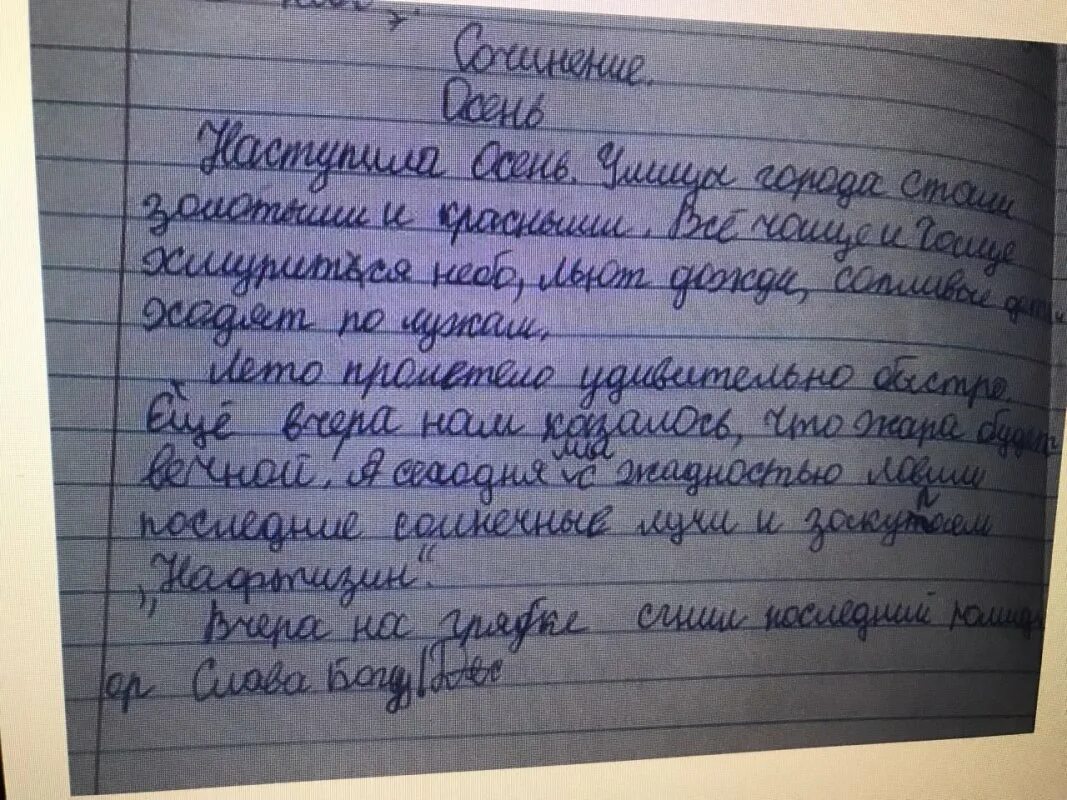 Сочинение.
Осень
Наступила Осень. Улицы города стали
золотыми и красными. Всё чаще и чаще
хмурится небо, льют дожди, сопливые дети
ходят по лужам.
Лето пролетело удивительно быстро.
Ещё вчера нам казалось, что жара будет
вечной. А сегодня мы с жадностью ловим
последние солнечные лучи и закупаем
„Нафтизин“.
Вчера на грядке сгнил последний помид
ор Слава Богу!